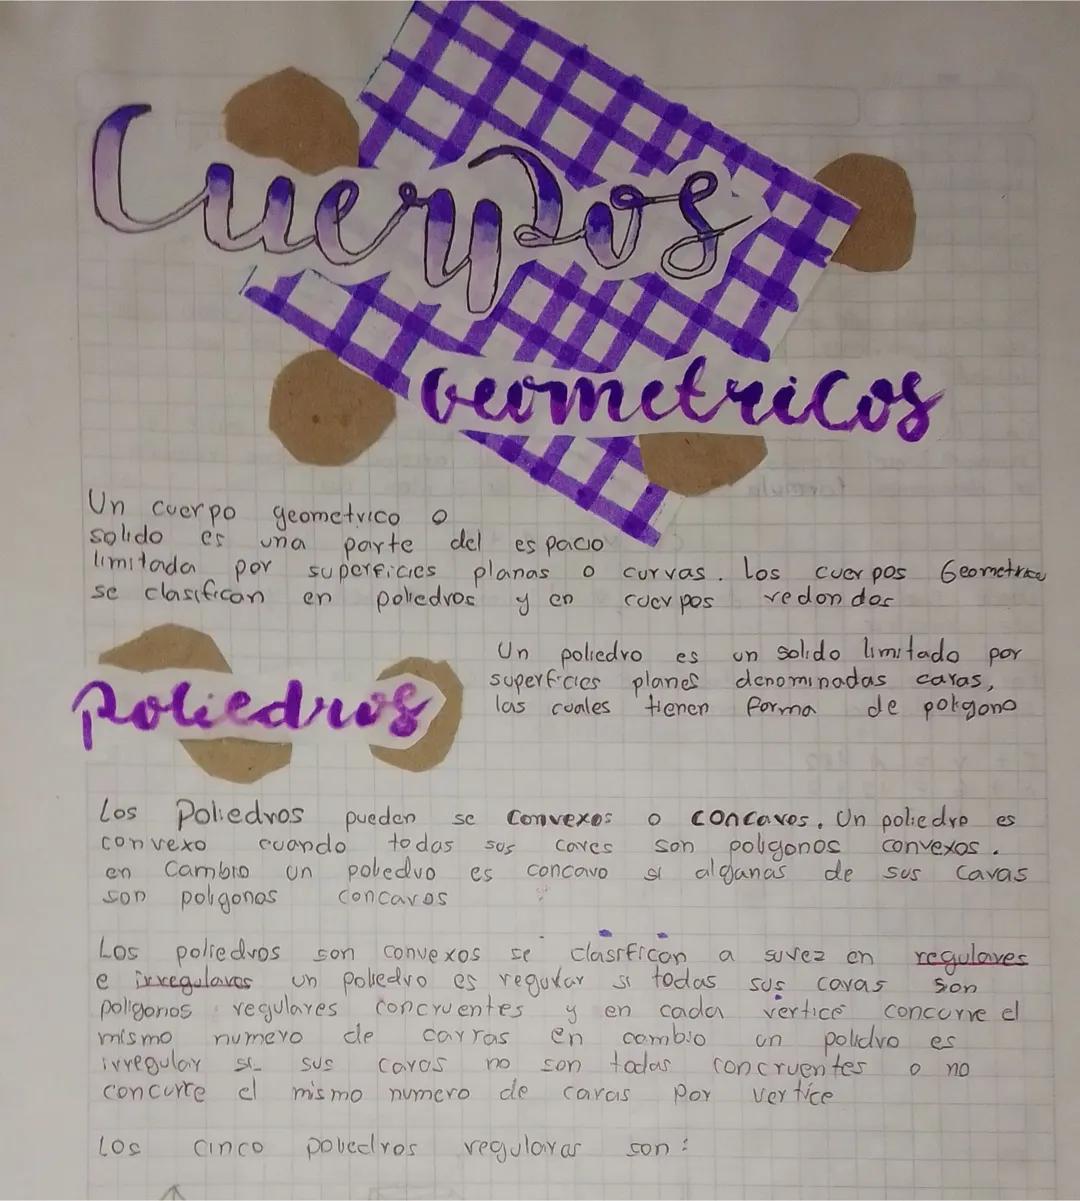 Cuerpos
Geometricos
Un cuerpo geometrico o
solido es una parte del espacio
limitada por superficies planas o curvas. Los cuerpos Geometricos
se clasifican en poliedros y en cuerpos redondos
Poliedros
Un poliedro es un solido limitado por
superficies planes denominadas caras,
las cuales tienen forma de poligono
Los Poliedros pueden se convexos o concavos. Un poliedro es
convexo cuando todas sus caves son poligonos convexos.
en Cambio un poliedro es concavo si algunas de sus caras
son poligonos concavos
Los poliedros son convexos se clasifican a suvez en regulares
e irregulares un poliedro es regular si todas sus caras son
poligonos regulares concruentes y en cada vertice concurre el
mismo numero de carras en cambio un polidro es
irregular si sus caras no son todas concruentes o no
concurre el mismo numero de caras por vertice
Los cinco poliedros regularas son: